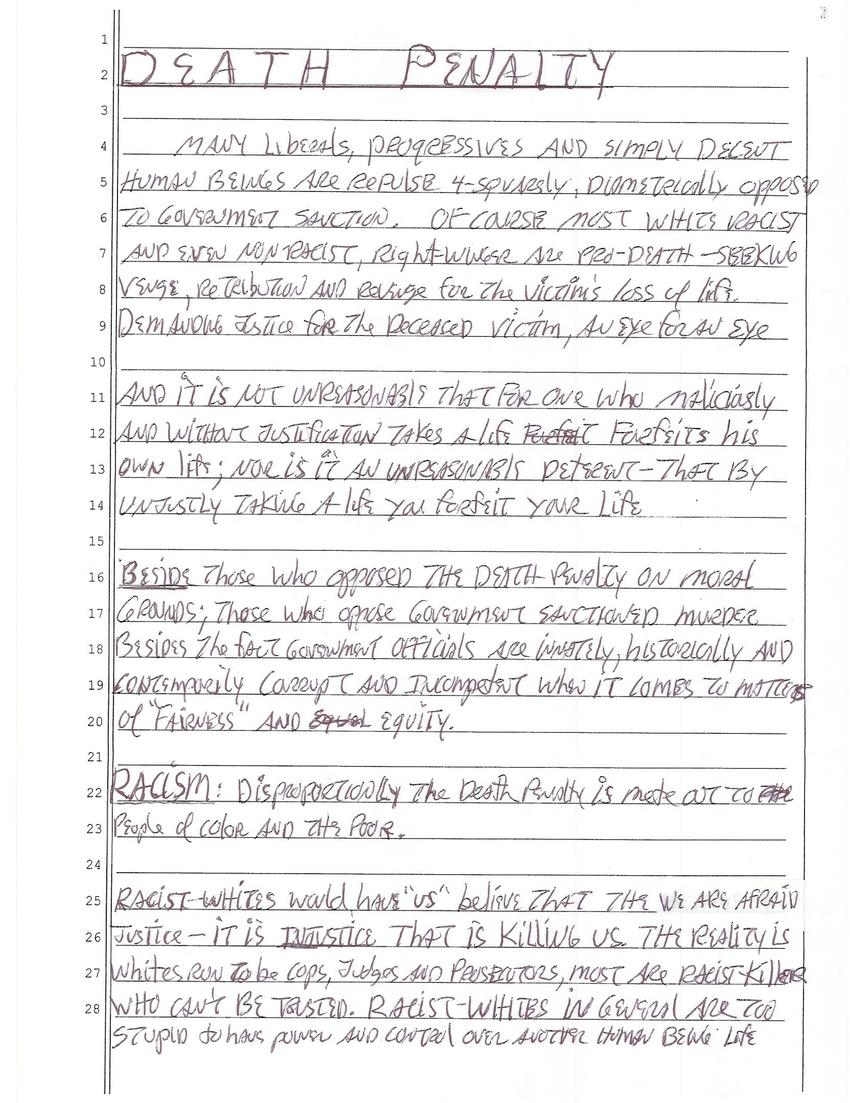 1
2 DEATH PENALTY
3
4 MANY Liberals, PROGRESSIVES AND SIMPLY DECENT
5 HUMAN BEINGS ARE REPULSE 4-SQUARSLY, DIAMETRICALLY OPPOSED
6 TO GOVERNMENT SANCTION. OF CARSE MOST WHITE RACIST
7 AND EVEN NON RACIST, Right-WINGER ARE PRO-DEATH-SEEKING
8 VENGE, RETRIBUTION AND REVENGE for The Victim's loss of life.
9 DEMANDING JUSTICE for The DECEASED Victim, AN EYE for AN EYE
10
11 AND IT IS NOT UNREASONABLE THAT FOR ONE Who maliciasly
12 AND WITHOUT JUSTIFICATION TAKES A life FORFEITS his
13 OWN life; NOR IS IT AN UNREASONABLE DETERENT-THAT BY
14 UNJUSTLY TAKING A life YOU forfeit YOUR LifE
15
16 BESIDE Those Who opposed THE DEATH PENALTY ON MORAL
17 GRANDS; Those Who oppose GOVERNMENT SANCTIONED MURDER
18 BESIDES The fact GOVERNMENT OFFICIALS ARE INNATELY, hISTORICALLY AND
19 CONTEMPORILY CARRUPT AND INCOMPETENT WHEN IT COMES TO MATTERS
20 Of "FAIRNESS" AND EQUITY.
21
22 RACISM: DISPROPORTIONALLY The DEATH PENALTY is mete OUT TO
23 People of color AND THE POOR.
24
25 RACIST-WHITES would have "us" believe THAT THE WE ARE AFRAID
26 JUSTICE - IT IS INJUSTICE THAT IS KILLING US. THE REALITY IS
27 Whites RUN To be COPS, JUDGES AND PROSECUTORS, MOST ARE RACIST-KILLER
28 WHO CAN'T BE TRUSTED. RACIST-WHITES IN GENERAL ARE TOO
STUPID to have power AND CONTROL OVER ANOTHER HUMAN BEING LIFE